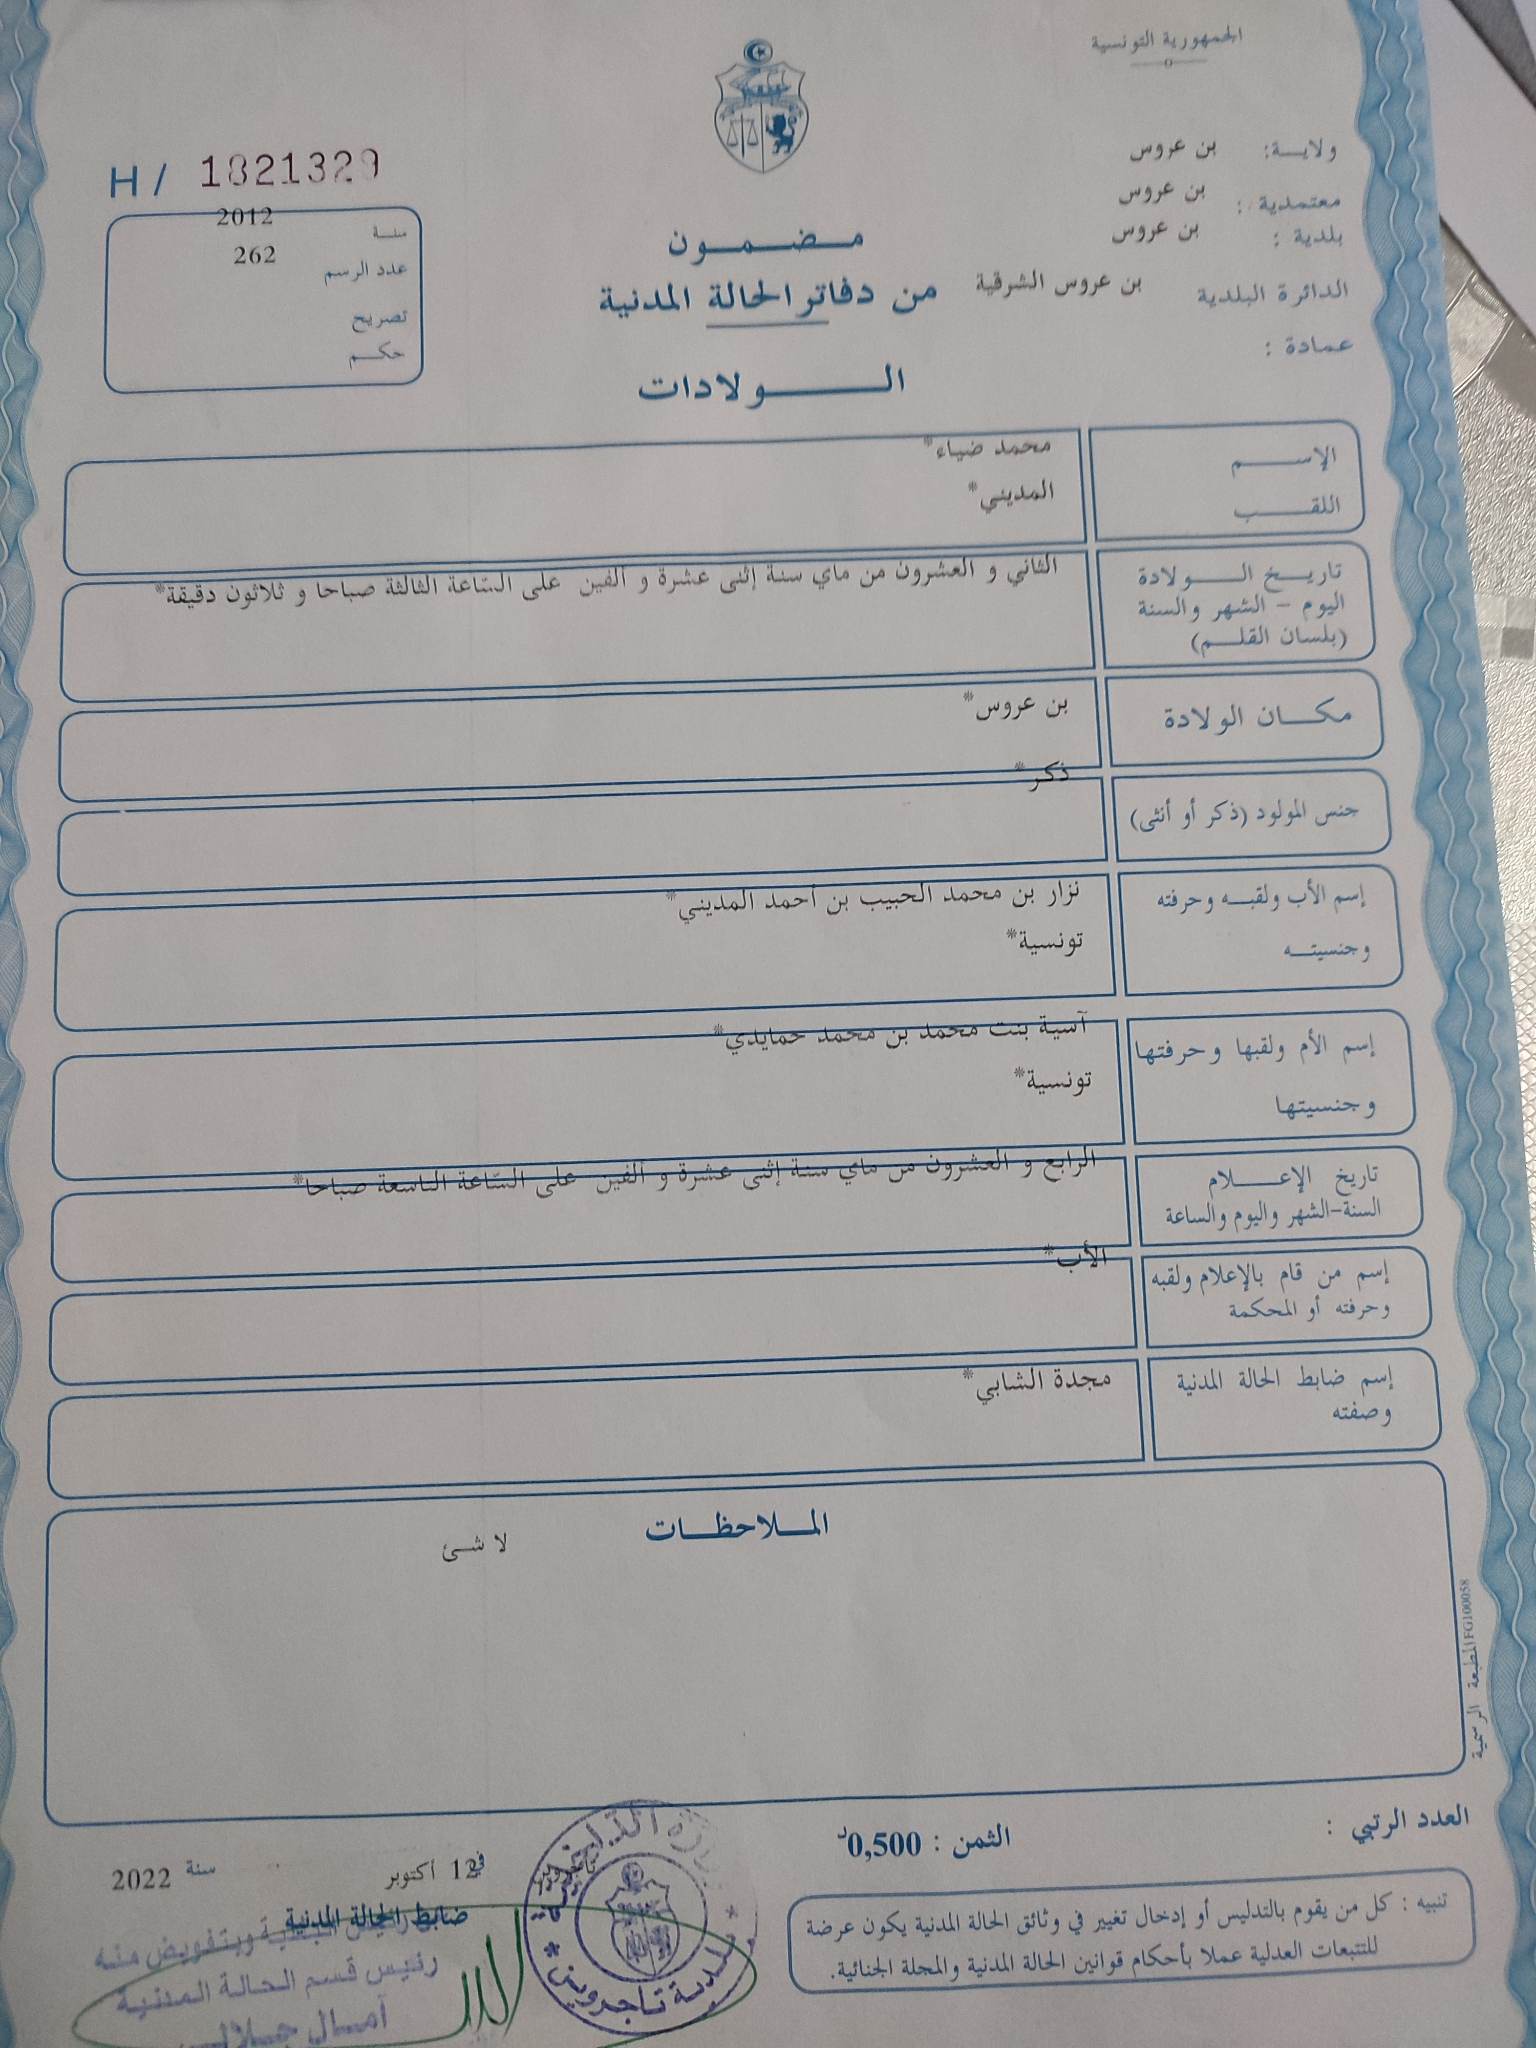 الجمهورية التونسية
ولايـــة: بن عروس
معتمدية : بن عروس
بلدية : بن عروس
الدائرة البلدية بن عروس الشرقية
عمادة :
H / 1821329
سنــة 2012
عدد الرسم 262
تصريح
حكـــم
مـــضـــمـــون
من دفاتر الحالة المدنية
الـــــــــولادات
الإســـــــم محمد ضياء*
اللقــــــب المديني*
تاريـــخ الـــــــولادة الثاني و العشرون من ماي سنة إثنى عشرة و ألفين على السّاعة الثالثة صباحا و ثلاثون دقيقة*
اليوم – الشهر والسنة
(بلسان القلـــم)
مكـــان الولادة بن عروس*
جنس المولود (ذكر أو أنثى) ذكر*
إسم الأب ولقبـــه وحرفته نزار بن محمد الحبيب بن أحمد المديني*
وجنسيتـــه تونسية*
إسم الأم ولقبها وحرفتها آسية بنت محمد بن محمد حمايدي*
وجنسيتها تونسية*
تاريخ الإعـــــلام الرابع و العشرون من ماي سنة إثنى عشرة و ألفين على السّاعة التاسعة صباحا*
السنة-الشهر واليوم والساعة
إسم من قام بالإعلام ولقبه الأب*
وحرفته أو المحكمة
إسم ضابط الحالة المدنية مجدة الشابي*
وصفته
المـــلاحظـــات
لا شئ
المطبعة الرسمية FG100058
العدد الرتبي :
الثمن : 0,500د
تنبيه : كل من يقوم بالتدليس أو إدخال تغيير في وثائق الحالة المدنية يكون عرضة
للتتبعات العدلية عملا بأحكام قوانين الحالة المدنية والمجلة الجنائية.
تاجروين في 12 أكتوبر سنة 2022
ضابط الحالة المدنية
وبتفويض منه
رئيس قسم الحالة المدنية
آمال جلالي
بلدية تاجروين